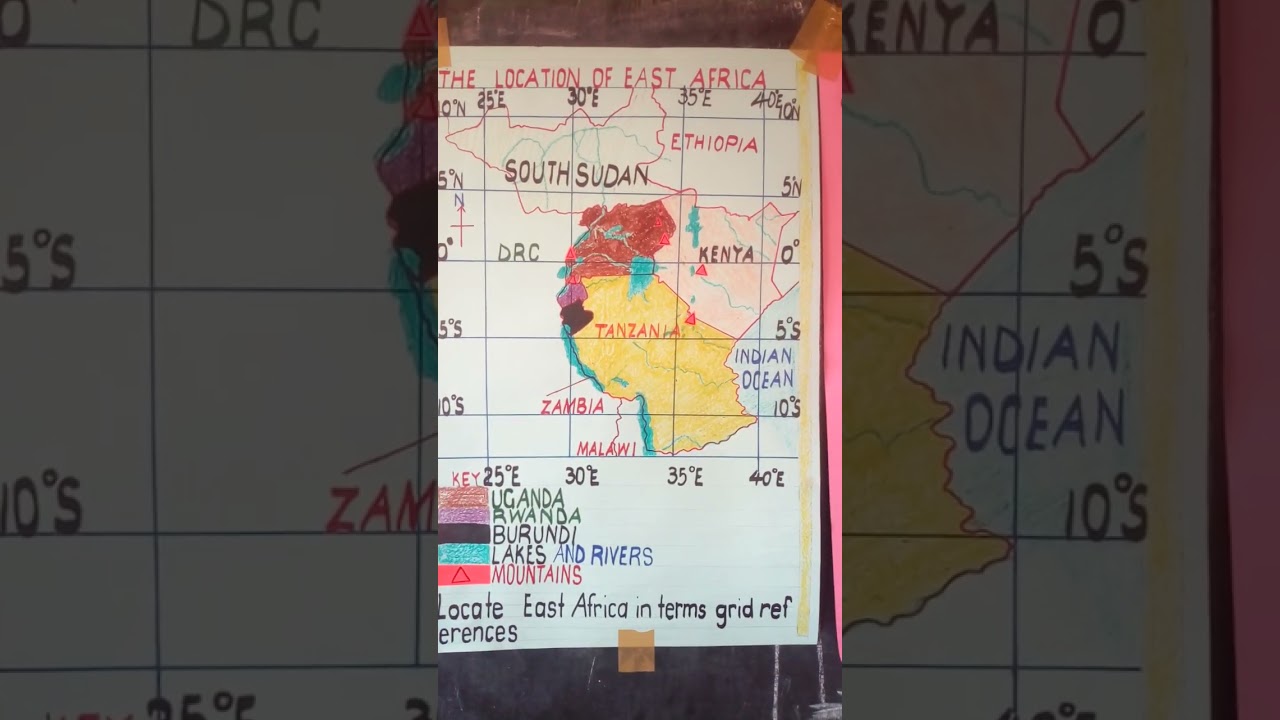 THE LOCATION OF EAST AFRICA
25°E 30°E 35°E 40°E
10°N 10°N
ETHIOPIA
SOUTH SUDAN
5°N 5°N
N
DRC KENYA
0° 0°
TANZANIA
5°S 5°S
INDIAN
OCEAN
ZAMBIA
10°S 10°S
MALAWI
KEY 25°E 30°E 35°E 40°E
UGANDA
RWANDA
BURUNDI
LAKES AND RIVERS
MOUNTAINS
Locate East Africa in terms grid ref
erences